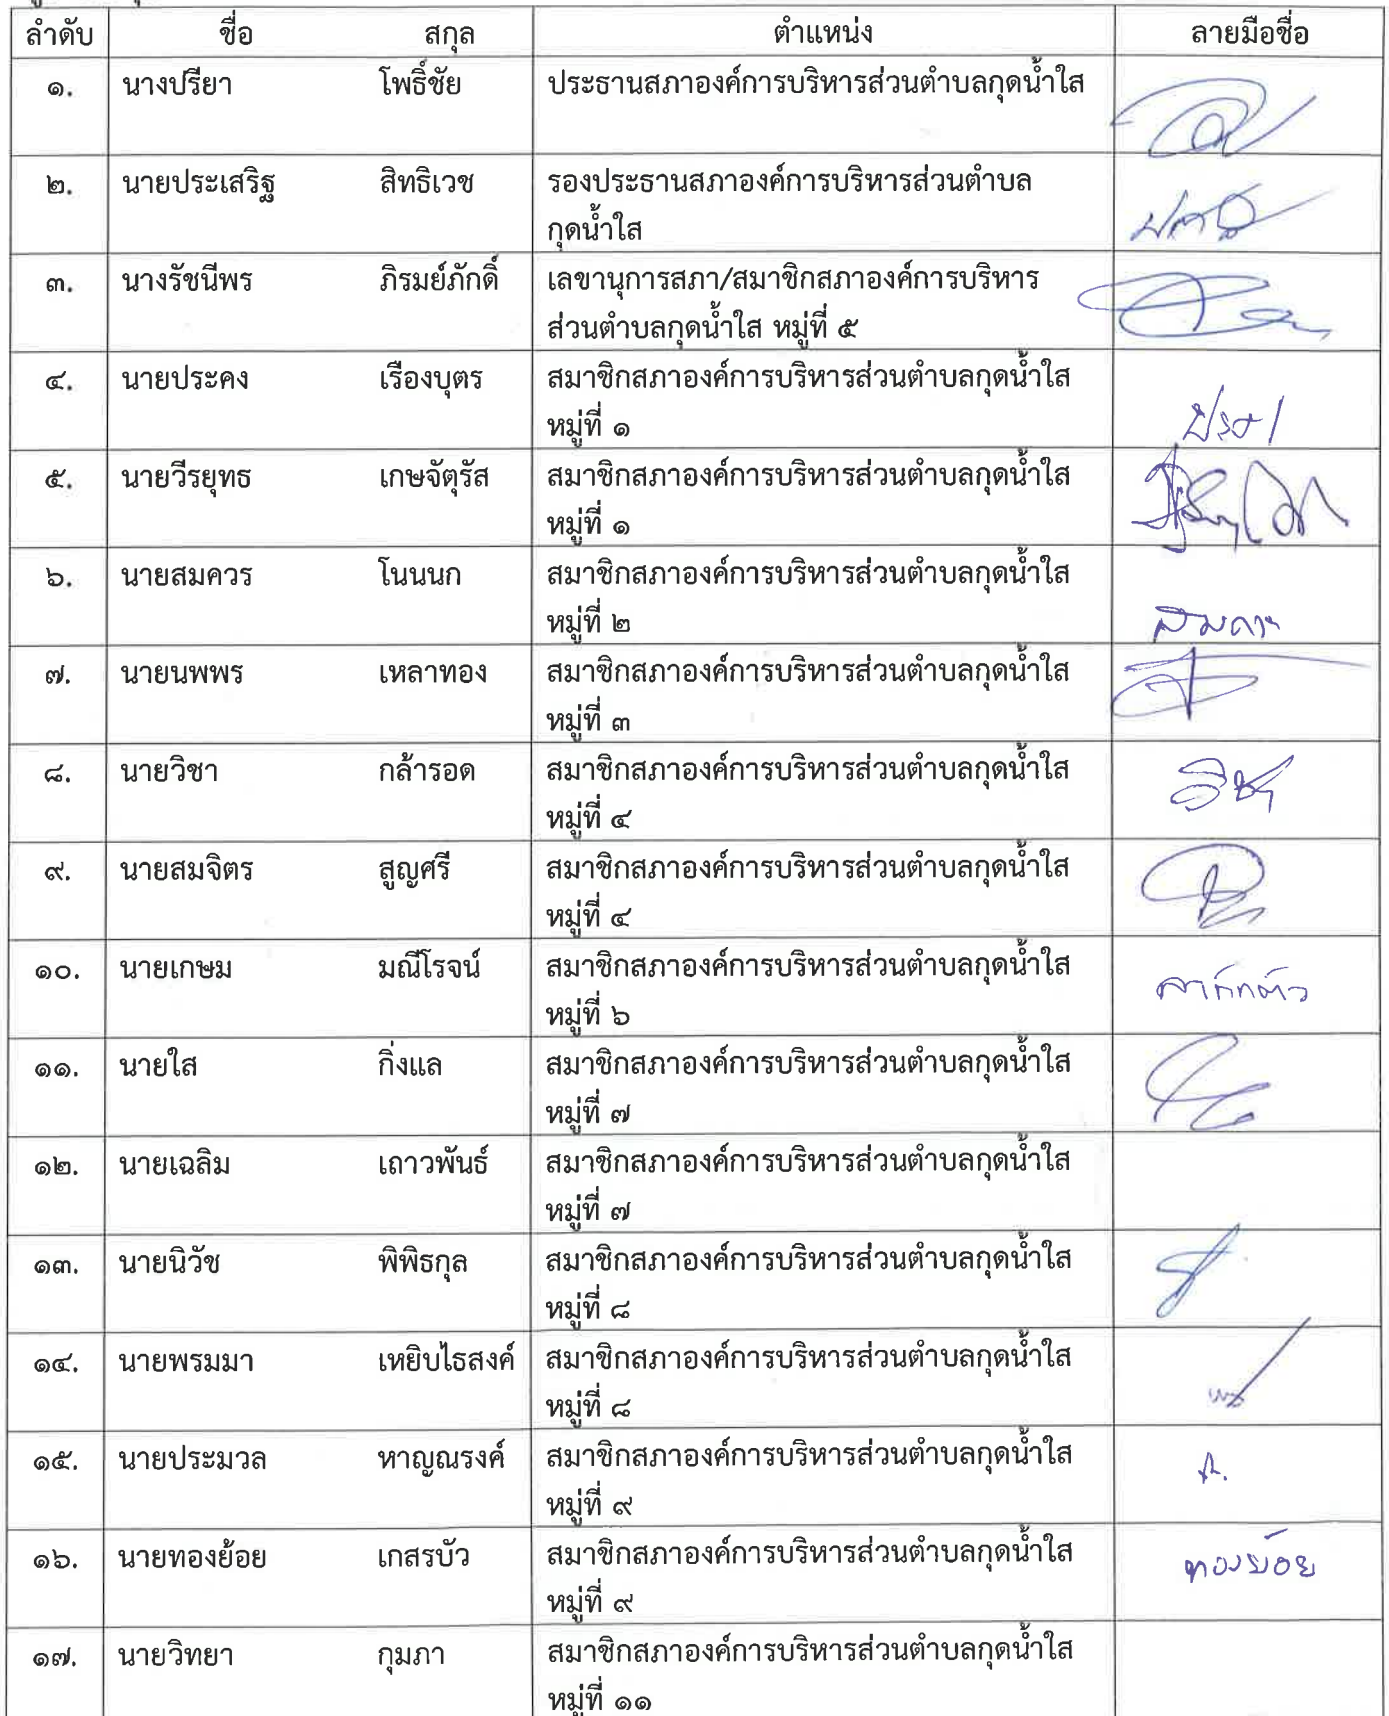 ลำดับ ชื่อ สกุล ตำแหน่ง ลายมือชื่อ
๑. นางปรียา โพธิ์ชัย ประธานสภาองค์การบริหารส่วนตำบลกุดน้ำใส
๒. นายประเสริฐ สิทธิเวช รองประธานสภาองค์การบริหารส่วนตำบล
กุดน้ำใส
๓. นางรัชนีพร ภิรมย์ภักดิ์ เลขานุการสภา/สมาชิกสภาองค์การบริหาร
ส่วนตำบลกุดน้ำใส หมู่ที่ ๕
๔. นายประคง เรืองบุตร สมาชิกสภาองค์การบริหารส่วนตำบลกุดน้ำใส
หมู่ที่ ๑
๕. นายวีรยุทธ เกษจัตุรัส สมาชิกสภาองค์การบริหารส่วนตำบลกุดน้ำใส
หมู่ที่ ๑
๖. นายสมควร โนนนก สมาชิกสภาองค์การบริหารส่วนตำบลกุดน้ำใส
หมู่ที่ ๒
๗. นายนพพร เหลาทอง สมาชิกสภาองค์การบริหารส่วนตำบลกุดน้ำใส
หมู่ที่ ๓
๘. นายวิชา กล้ารอด สมาชิกสภาองค์การบริหารส่วนตำบลกุดน้ำใส วิชา
หมู่ที่ ๔
๙. นายสมจิตร สูญศรี สมาชิกสภาองค์การบริหารส่วนตำบลกุดน้ำใส
หมู่ที่ ๔
๑๐. นายเกษม มณีโรจน์ สมาชิกสภาองค์การบริหารส่วนตำบลกุดน้ำใส
หมู่ที่ ๖
๑๑. นายใส กิ่งแล สมาชิกสภาองค์การบริหารส่วนตำบลกุดน้ำใส
หมู่ที่ ๗
๑๒. นายเฉลิม เถาวพันธ์ สมาชิกสภาองค์การบริหารส่วนตำบลกุดน้ำใส
หมู่ที่ ๗
๑๓. นายนิวัช พิพิธกุล สมาชิกสภาองค์การบริหารส่วนตำบลกุดน้ำใส
หมู่ที่ ๘
๑๔. นายพรมมา เหยิบไธสงค์ สมาชิกสภาองค์การบริหารส่วนตำบลกุดน้ำใส
หมู่ที่ ๘
๑๕. นายประมวล หาญณรงค์ สมาชิกสภาองค์การบริหารส่วนตำบลกุดน้ำใส
หมู่ที่ ๙
๑๖. นายทองย้อย เกสรบัว สมาชิกสภาองค์การบริหารส่วนตำบลกุดน้ำใส ทองย้อย
หมู่ที่ ๙
๑๗. นายวิทยา กุมภา สมาชิกสภาองค์การบริหารส่วนตำบลกุดน้ำใส
หมู่ที่ ๑๑